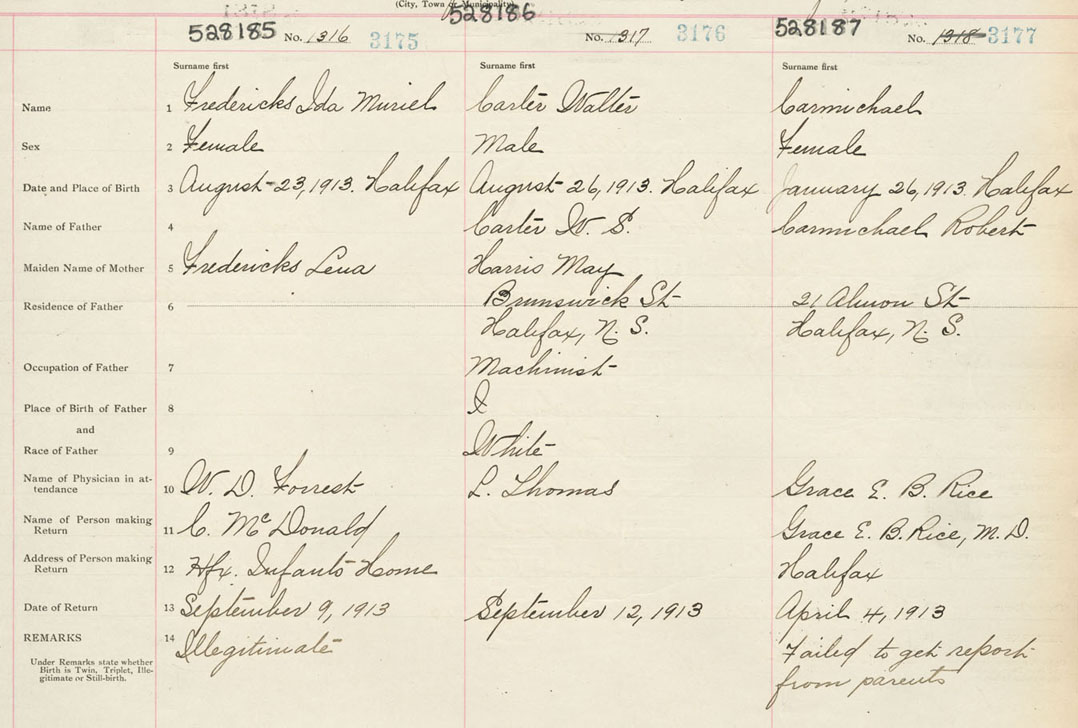 (City, Town or Municipality)
528185 No. 1316 3175
528186 No. 1317 3176
528187 No. 1318 3177
Surname first Surname first Surname first
Name 1 Fredericks Ida Muriel Carter Walter Carmichael
Sex 2 Female Male Female
Date and Place of Birth 3 August 23, 1913. Halifax August 26, 1913. Halifax January 26, 1913. Halifax
Name of Father 4 Carter W. S. Carmichael Robert
Maiden Name of Mother 5 Fredericks Lena Harris May
Residence of Father 6 Brunswick St 21 Almon St
Halifax, N. S. Halifax, N. S.
Occupation of Father 7 Machinist
Place of Birth of Father 8
and
Race of Father 9 White
Name of Physician in at-
tendance 10 W. D. Forrest L. Thomas Grace E. B. Rice
Name of Person making
Return 11 C. McDonald Grace E. B. Rice, M. D.
Address of Person making
Return 12 Hfx. Infants Home Halifax
Date of Return 13 September 9, 1913 September 12, 1913 April 4, 1913
REMARKS 14 Illegitimate Failed to get report
from parents
Under Remarks state whether
Birth is Twin, Triplet, Ille-
gitimate or Still-birth.